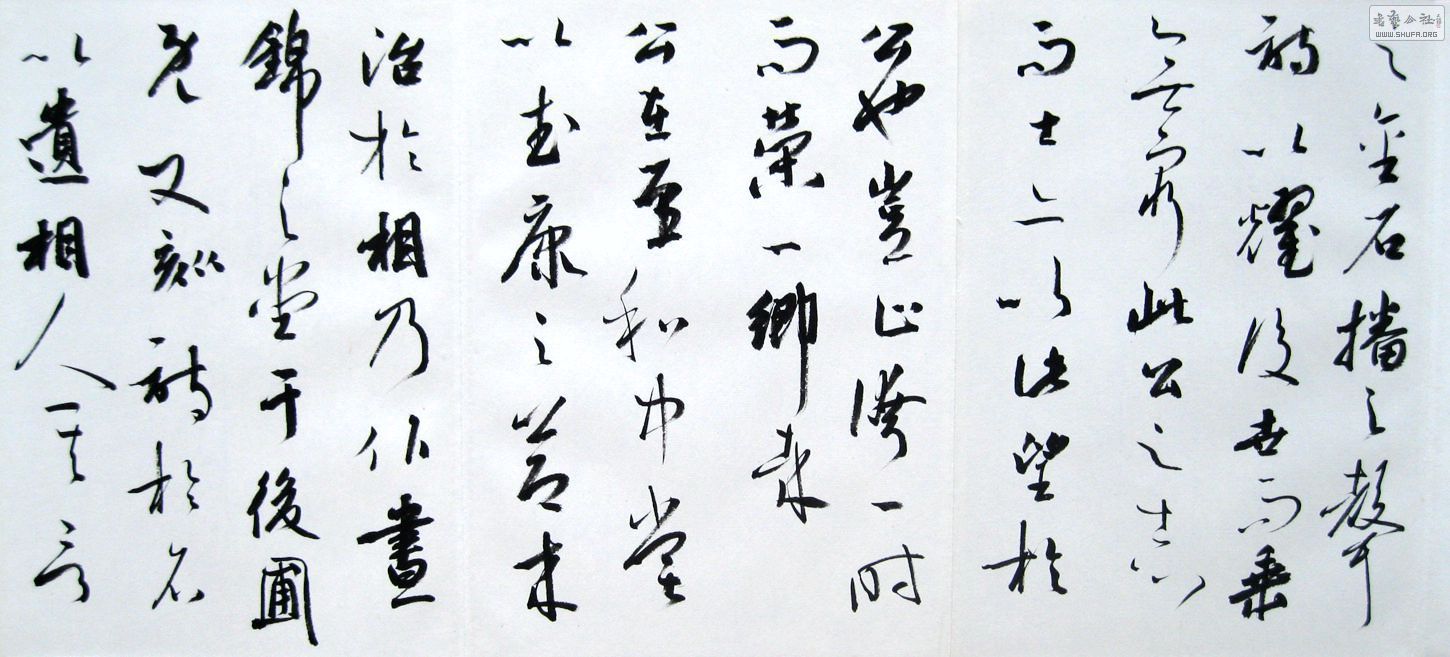 之金石播之聲
詩以耀後世而垂
無窮此公之志
而士亦以此望於
公也豈止誇一時
而榮一鄉哉
公在至和中嘗
以武康之節来
治於相乃作晝
錦之堂于後圃
既又刻詩於石
以遺相人其言
WWW.SHUFA.ORG